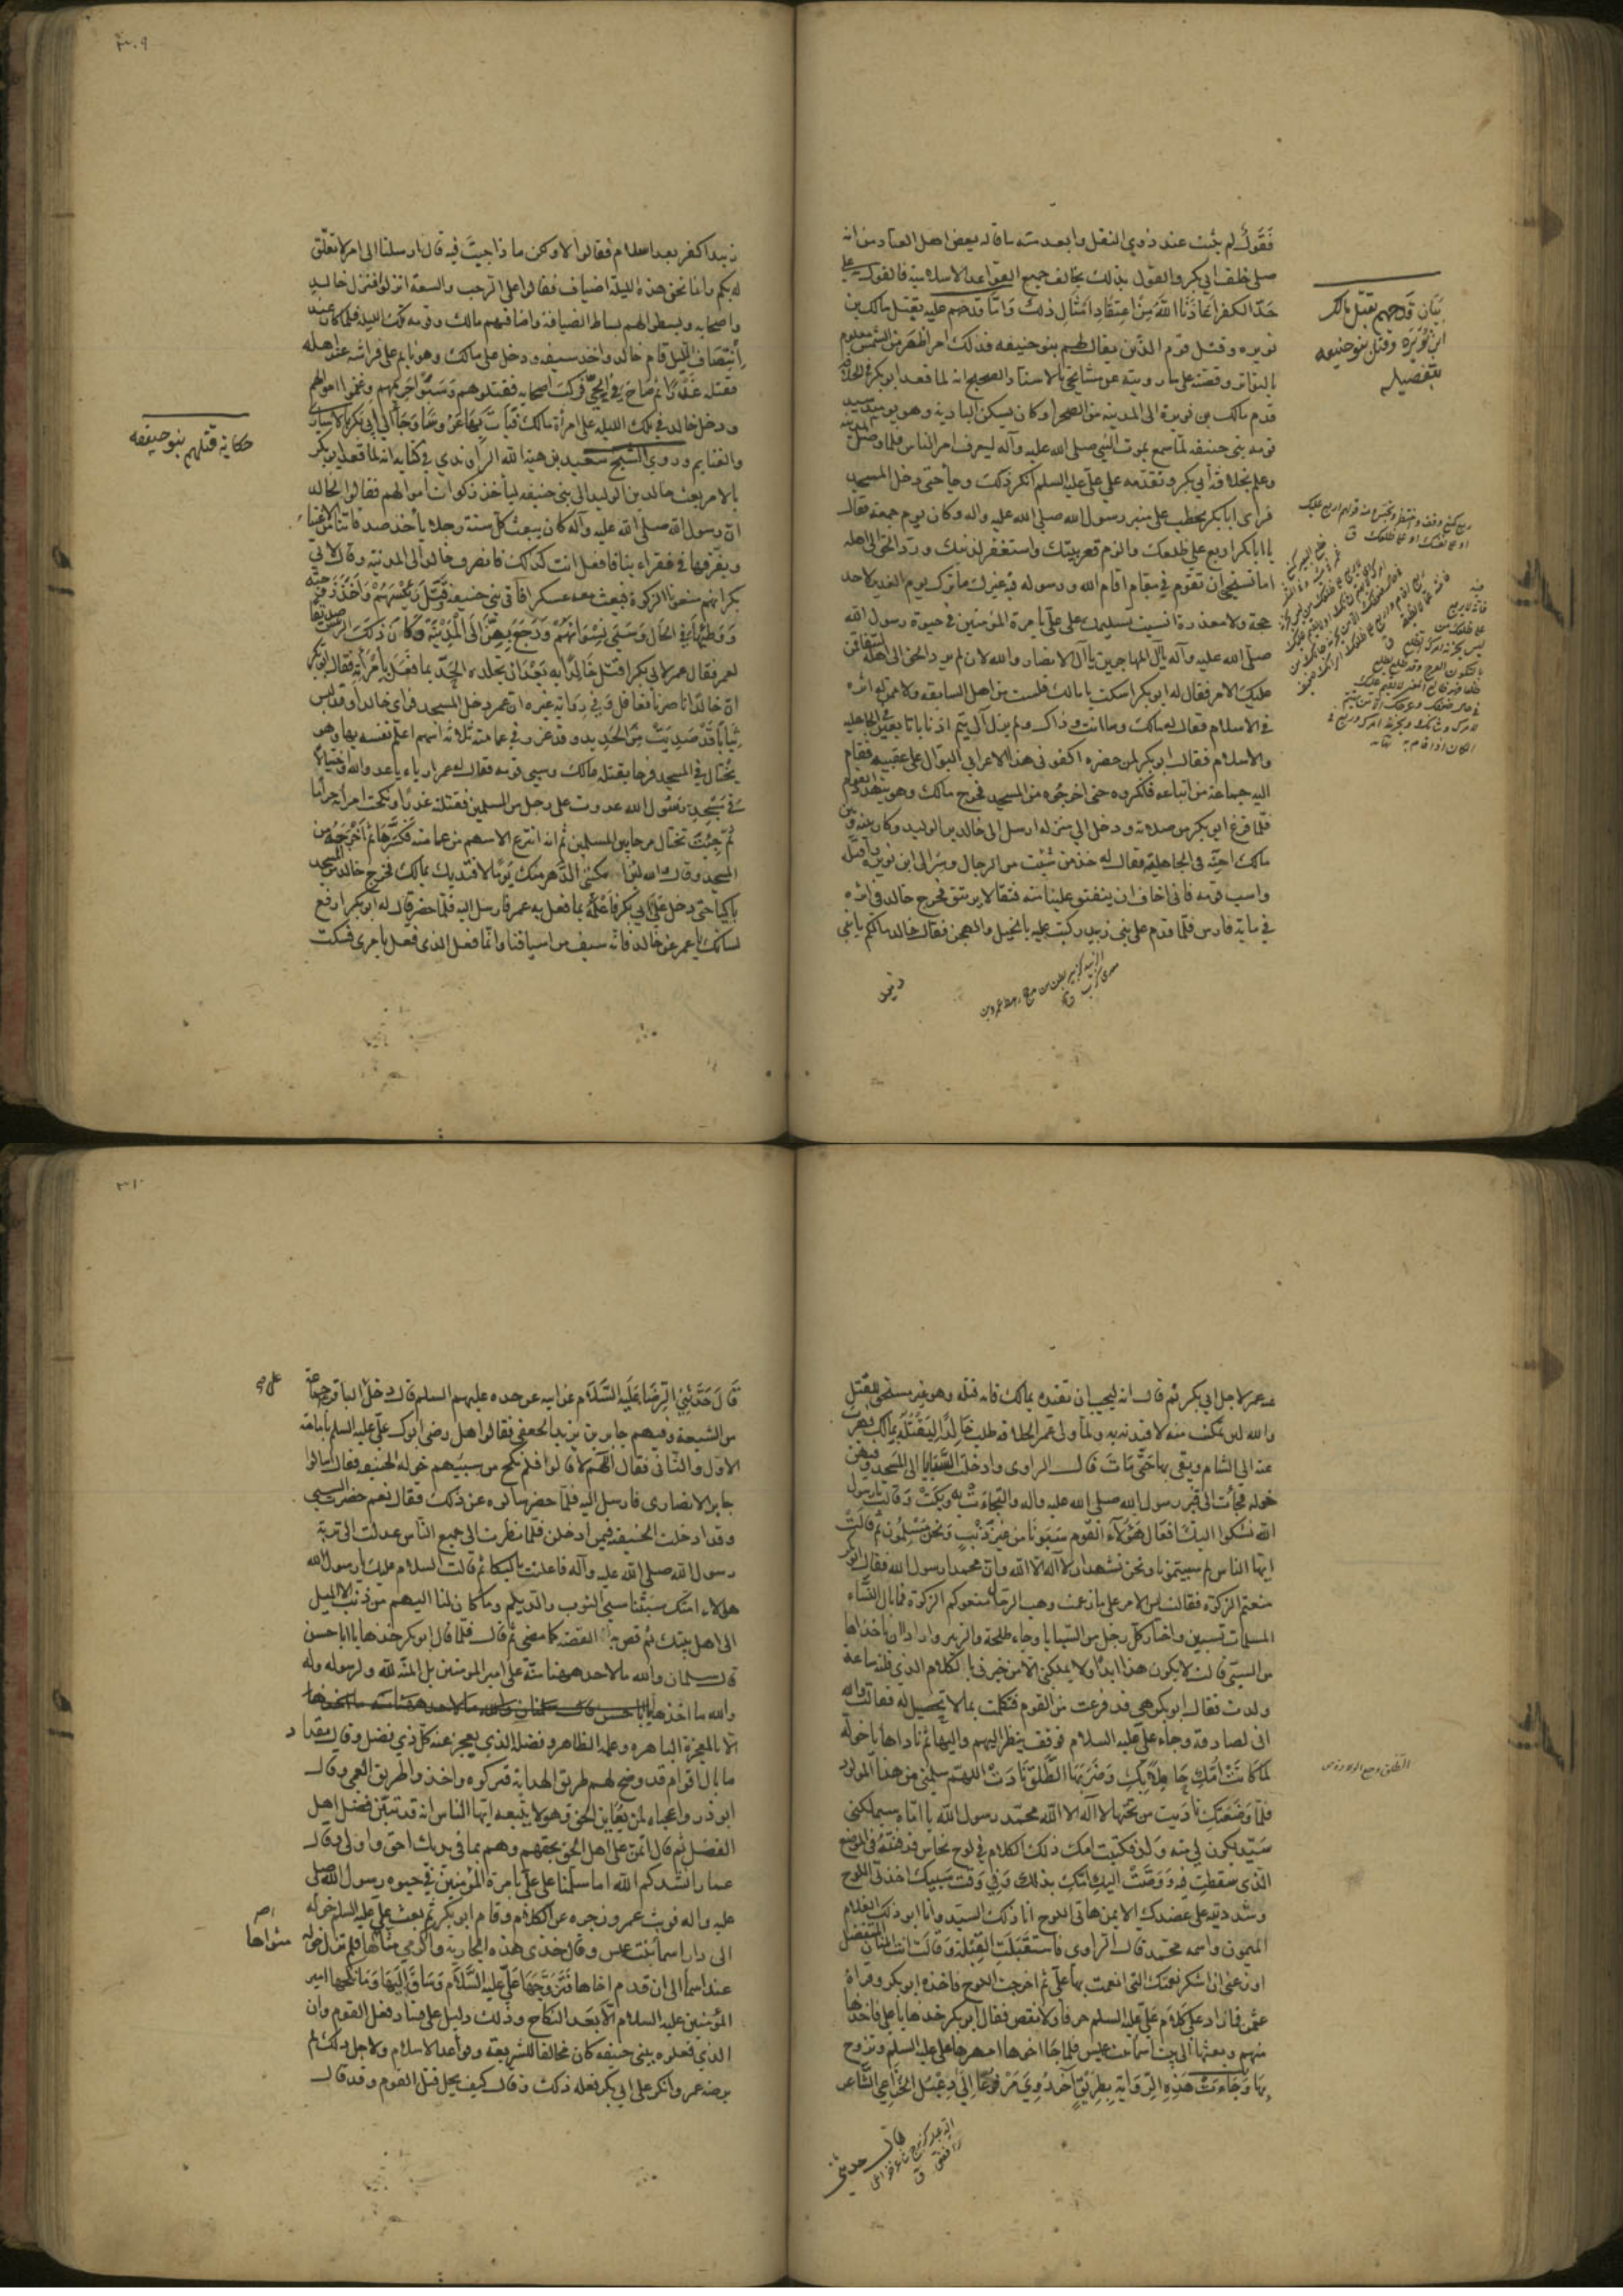 فقول لم يثبت عند ذوي النقل وابعد منه ما قاله بعض اهل العناد من انه
صلى خلف ابي بكر والقول بذلك يخالف جميع القواعد الاسلامية فالقول على
حد الكفر اعاذنا الله من اعتقاد امثال ذلك واما قدحهم عليه بقتل مالك بن
نويره وقتل قوم الذين يقال لهم بنو حنيفه فذلك امر اظهر من الشمس معلوم
بالتواتر وقصته على ما رويته عن مشايخي بالاسناد الصحيح انه لما قعد ابو بكر
قدم مالك بن نويرة الى المدينة من الصحرا وكان يسكن البادية وهو يومئذ سيد
قومه بني حنيفه لما سمع بموت النبي صلى الله عليه وآله ليعرف امر الناس فلما وصل المدينة
وعلم بخلافة ابي بكر وتقدمه على علي عليه السلم انكر ذلك وجاء حتى دخل المسجد
فراى ابا بكر يخطب على منبر رسول الله صلى الله عليه واله وكان يوم جمعة فقال
يا ابا بكر اربع على ظلعك والزم قعر بيتك واستغفر لذنبك ورد الحق الى اهله
اما تستحيي ان تقوم في مقام اقام الله ورسوله فيه غيرك ما ترك يوم الغدير لاحد
حجة ولا معذرة انسيت تسليمك على علي بامرة المؤمنين في حيوة رسول الله
صلى الله عليه وآله يال المهاجرين يال الانصار والله لان لم يرد الحق الى اهله
عليك الامر فقال له ابو بكر اسكت يا مالك فلست من اهل السابقه ولا ممن له اثره
في الاسلام فقال له مالك وما انت وذاك ولم يزل آل تيم اذنابا تابعين في الجاهلية
والاسلام فقال ابو بكر لمن حضره اكفوني هذا الاعرابي البوال على عقبيه فقام
اليه جماعة من اتباعه فلكزوه حتى اخرجوه من المسجد فخرج مالك وهو يتهدد القوم
فلما فرغ ابو بكر من صلاته ودخل الى منزله ارسل الى خالد بن الوليد وكان بينه وبين
مالك احنة في الجاهلية فقال له خذ من شئت من الرجال وسر الى ابن نويره فاقتله
واسب قومه فاني اخاف ان ينفتق علينا منه فتقا لا يرتتق فخرج خالد في اثره
في ماية فارس فلما قدم على بني زبيد ركبت عليه بالخيل والمحجن فقال خالد مالكم يا بني
بيان قدحهم بقتل مالك
ابن نويره وقتل بنو حنيفه
بتفصيله
زبيدا كفر بعد اسلام فقالوا لا ولكن ما ذا جيت فيه قال ارسلنا الى امر لا تعلق
له بكم وانما نحن هذه الليلة اضياف فقالوا على الرحب والسعة انزلوا فنزل خالد
واصحابه وبسطوا لهم بساط الضيافة واضافهم مالك وقومه تلك الليلة فلما كان عند
انتصاف الليل قام خالد واخذ سيفه ودخل على مالك وهو نايم على فراشه عند اهله
فقتله غدرا ثم صاح في الحي فركب اصحابه فقتلوهم وسبوا حريمهم وغنموا اموالهم
ودخل خالد في تلك الليله على امراة مالك فبات بها عروسا وجاء الى ابي بكر بالاسارى
والغنايم وروى الشيخ سعيد بن هبة الله الراوندي في كتابه انه لما قعد ابو بكر
بالامر بعث خالد بن الوليد الى بني حنيفه لياخذ زكوات اموالهم فقالوا لخالد
ان رسول الله صلى الله عليه وآله كان يبعث كل سنة رجلا ياخذ صدقاتنا من الاغنياء
ويفرقها في فقراء بنا فافعل انت كذلك فانصرف خالد الى المدينة وقال لابي
بكر انهم منعونا الزكوة فبعث معه عسكرا فاتى بني حنيفه وقتل رئيسهم واخذ زوجته
ووطئها في الحال وسبى نسوانهم ورجع بهن الى المدينة وكان ذلك الرئيس صديقا
لعمر فقال عمر لابي بكر اقتل خالدا به بعد ان تجلده الحد بما فعل بامراته فقال ابو بكر
ان خالدا ناصرنا تغافل وفي رواية غيره ان عمر دخل المسجد فراى خالدا وقد لبس
ثيابا قد صديت من الحديد وقد غرز في عمامته ثلاثة اسهم اعلم نفسه بها وهو
يختال في المسجد فرحا بقتله مالك وسبي قومه فقال له عمر ارياء يا عدو الله واختيالا
في مسجد رسول الله عدوت على رجل من المسلمين فقتلته غدرا ونكحت امراته حراما
ثم جئت تختال مرحا بين المسلمين ثم انه انتزع الاسهم من عمامته فكسرها ثم اخرجه من
المسجد وقال والله لئن مكنني الدهر منك يوما لاقتدينك بمالك فخرج خالد من المسجد
باكيا حتى دخل على ابي بكر فاعلمه بما فعل به عمر فارسل اليه فلما حضر قال له ابو بكر ارفع
لسانك يا عمر عن خالد فانه سيف من اسيافنا وانما فعل الذي فعل بامري فسكت
حكاية قتلهم بنو حنيفه
٣٠٩
عنه عمر لاجل ابي بكر ثم قال انه ليجب ان تقتده بمالك فانه قتله وهو غير مستحق للقتل
والله لئن تمكنت منه لاقتدنه به ولما ولى عمر الخلافه طلب خالدا ليقتله بمالك فهرب
عنه الى الشام وبقى بها حتى مات قال الراوي وادخلت السبايا الى المسجد وفيهن
خوله فجائت الى قبر رسول الله صلى الله عليه واله والتجات به وبكت وقالت يا رسول
الله نشكوا اليك افعال هؤلاء القوم سبونا من غير ذنب ونحن مسلمون ثم قالت
ايها الناس لم سبيتمونا ونحن نشهد ان لا اله الا الله وان محمدا رسول الله فقال ابو بكر
منعتم الزكوة فقالت ليس الامر على ما زعمت وهب الرجال منعوكم الزكوة فما بال النساء
المسلمات تسبين واختار كل رجل من السبايا وجاء طلحة والزبير وارادا ان ياخذاها
من السبي قالت لا يكون هذا ابدا ولا يملكني الا من خبرني بالكلام الذي قلته ساعة
ولدت فقال ابو بكر هي قد فزعت من القوم فتكلمت بما لا تحصيل له فقالت والله
اني لصادقة وجاء علي عليه السلام فوقف ينظر اليهم واليها ثم ناداها يا خوله
لما كانت امك حاملا بك وضربها الطلق نادت اللهم سلمني من هذا المولود
فلما وضعتك ناديت من تحتها لا اله الا الله محمد رسول الله يا اماه سيملكني
سيد يكون لي منه ولد فكتبت امك ذلك الكلام في لوح نحاس فدفنته في الموضع
الذي سقطت فيه ووصت اليك امك بذلك وفي وقت سبيك اخذت اللوح
وشددتيه على عضدك الايمن هاتي اللوح انا ذلك السيد وانا ابو ذلك الغلام
الميمون واسمه محمد قال الراوي فاستقبلت القبلة وقالت انت المنان المتفضل
اوزعني ان اشكر نعمتك التي انعمت بها علي ثم اخرجت اللوح فاخذه ابو بكر وقراه
عثمن فما زاد على كلام علي عليه السلم حرفا ولا نقص فقال ابو بكر خذها يا علي فاخذها
منهم وبعثها الى بيت اسما بنت عميس فلما جاء اخوها امهرها علي عليه السلم وتزوج
بها وجاءت هذه الرواية بطريق آخر روي مرفوعا الى دعبل الخزاعي الشاعر
قال حدثني
الطلق وجع الولادة
قال حدثني الرضا عليه السلام عن ابيه عن جده عليهم السلم قال دخل الباقر جماعة
من الشيعة وفيهم جابر بن يزيد الجعفي فقالوا هل رضي ابوك علي عليه السلم بامامة
الاول والثاني فقال اللهم لا قالوا فلم نكح من سبيهم خوله الحنفيه فقال اسالوا
جابر الانصاري فارسل اليه فلما حضر سالوه عن ذلك فقال نعم حضرت السبي
وقد ادخلت الحنفيه فيمن ادخلن فلما نظرت الى جميع الناس عدلت الى تربة
رسول الله صلى الله عليه وآله فاعلنت بالبكا ثم قالت السلام عليك يا رسول الله
هؤلاء امتك سبتنا سبي النوب والديلم وما كان لنا اليهم من ذنب الا الميل
الى اهل بيتك ثم قص القصة كما مضى ثم قال فلما قال ابو بكر خذها يا ابا حسن
قال سلمان والله ما لاحد ههنا منة على امير المومنين بل المنة لله ولرسوله وله
والله ما اخذها
الا لمعجزه الباهره وعلمه الظاهر وفضله الذي يعجز عنه كل ذي فضل وقال مقداد
ما بال اقوام قد وضح لهم طريق الهداية فتركوه واخذوا طريق العمى وقال
ابو ذر واعجباه لمن يعاين الحق فهو لا يتبعه ايها الناس انه قد تبين فضل اهل
الفضل ثم قال اتمن على اهل الحق بحقهم وهم بما في يديك احق واولى وقال
عمار انشدكم الله اما سلمنا على علي بامرة المؤمنين في حيوة رسول الله صلى
عليه واله فوثب عمر وزجره عن الكلام وقام ابو بكر ثم بعث علي عليه السلم خوله
الى دار اسما بنت عميس وقال خذي هذه الجارية واكرمي مثواها فلم تزل خوله
عند اسما الى ان قدم اخاها فتزوجها علي عليه السلام وساق اليها وما نكحها امير
المؤمنين عليه السلام الا بعد النكاح وذلك دليل على فساد فعل القوم وان
الذي فعلوه ببني حنيفه كان مخالفا للشريعة وقواعد الاسلام ولاجل ذلك لم
يرضه عمر وانكر على ابي بكر فعله ذلك وقال كيف يحل قتل القوم وقد قال
مثواها
٣١٠